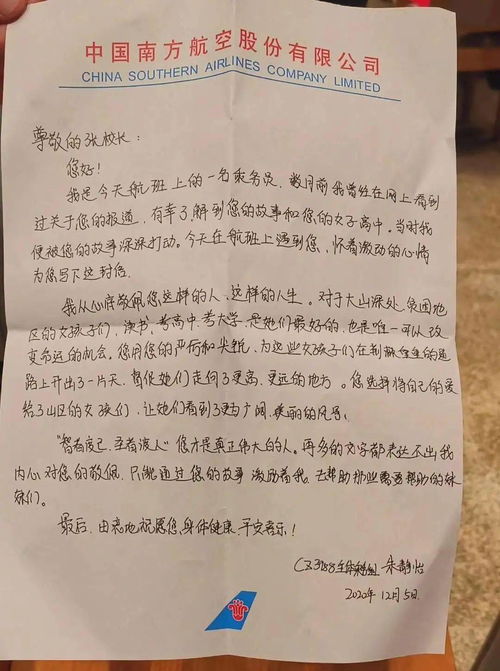 中国南方航空股份有限公司
CHINA SOUTHERN AIRLINES COMPANY LIMITED
尊敬的张校长：
您好！
我是今天航班上的一名乘务员，数月前我曾经在网上看到
过关于您的报道，有幸了解到您的故事和您的女子高中。当时我
便被您的故事深深打动。今天在航班上遇到您，怀着激动的心情
为您写下这封信。
我从心底敬佩您这样的人，这样的人生。对于大山深处，贫困地
区的女孩子们，读书，考高中，考大学，是她们最好的，也是唯一可以改
变命运的机会。您用您的严厉和尖锐，为这些女孩子们在荆棘的道
路上开出了一片天，督促她们走向了更高、更远的地方。您选择将自己的爱
给了山区的女孩们，让她们看到了更为广阔、美丽的风景。
“智者度己，圣者渡人”您才是真正伟大的人。再多的文字都表达不出我
内心对您的敬佩，只能通过您的故事激励着我，去帮助那些需要帮助的妹
妹们。
最后，由衷地祝愿您，身体健康，平安喜乐！
CZ3488 朱静怡
2020年12月5日